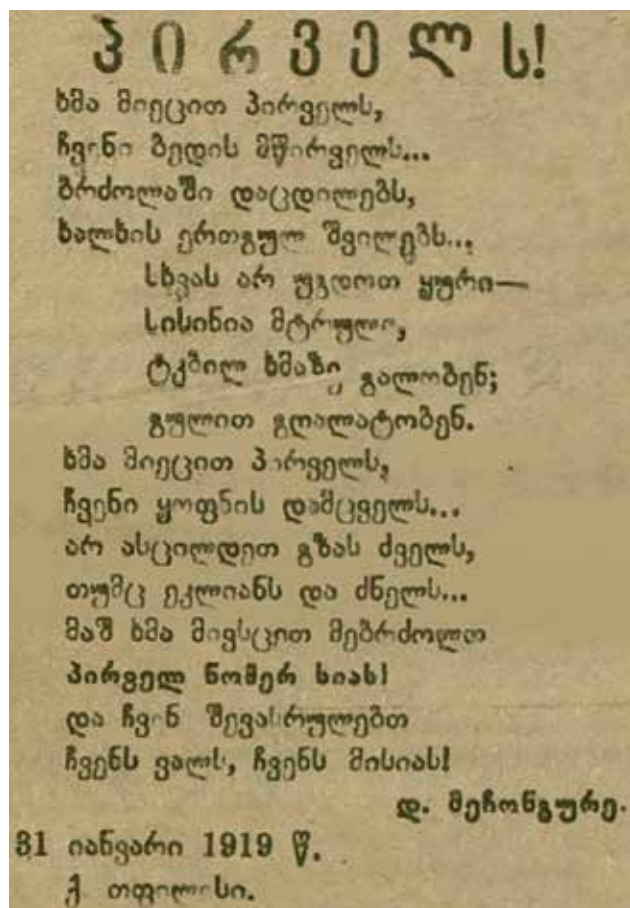 პირველს!
ხმა მიეცით პირველს,
ჩვენი ბედის მწირველს...
ბრძოლაში დაცდილებს,
ხალხის ერთგულ შვილებს...
სხვას არ უგდოთ ყური—
სისინია მტრული,
ტკბილ ხმაზე გალობენ;
გულით გღალატობენ.
ხმა მიეცით პირველს,
ჩვენი ყოფნის დამცველს...
არ ასცილდეთ გზას ძველს,
თუმც ეკლიანს და ძნელს...
მაშ ხმა მივსცეთ მებრძოლთ
პირველ ნომერ სიას!
და ჩვენ შევასრულებთ
ჩვენს ვალს, ჩვენს მისიას!
დ. მეჩონგურე.
31 იანვარი 1919 წ.
ქ. თფილისი.